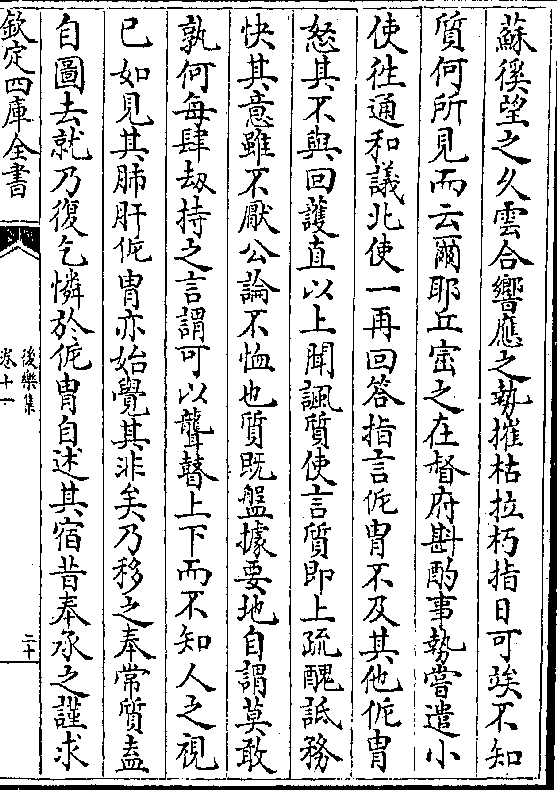 蘇徯望之久雲合響應之勢摧枯拉朽指日可竢不知
質何所見而云爾耶丘崈之在督府斟酌事勢嘗遣小
使徃通和議北使一再回答指言侂胄不及其他侂胄
怒其不與回護直以上聞諷質使言質即上疏醜詆務
快其意雖不厭公論不恤也質既盤據要地自謂莫敢
孰何每肆刼持之言謂可以聾瞽上下而不知人之視
已如見其肺肝侂胄亦始覺其非矣乃移之奉常質盍
自圖去就乃復乞憐於侂胄自述其宿昔奉承之謹求
欽定四庫全書
後樂集
卷十一
二十